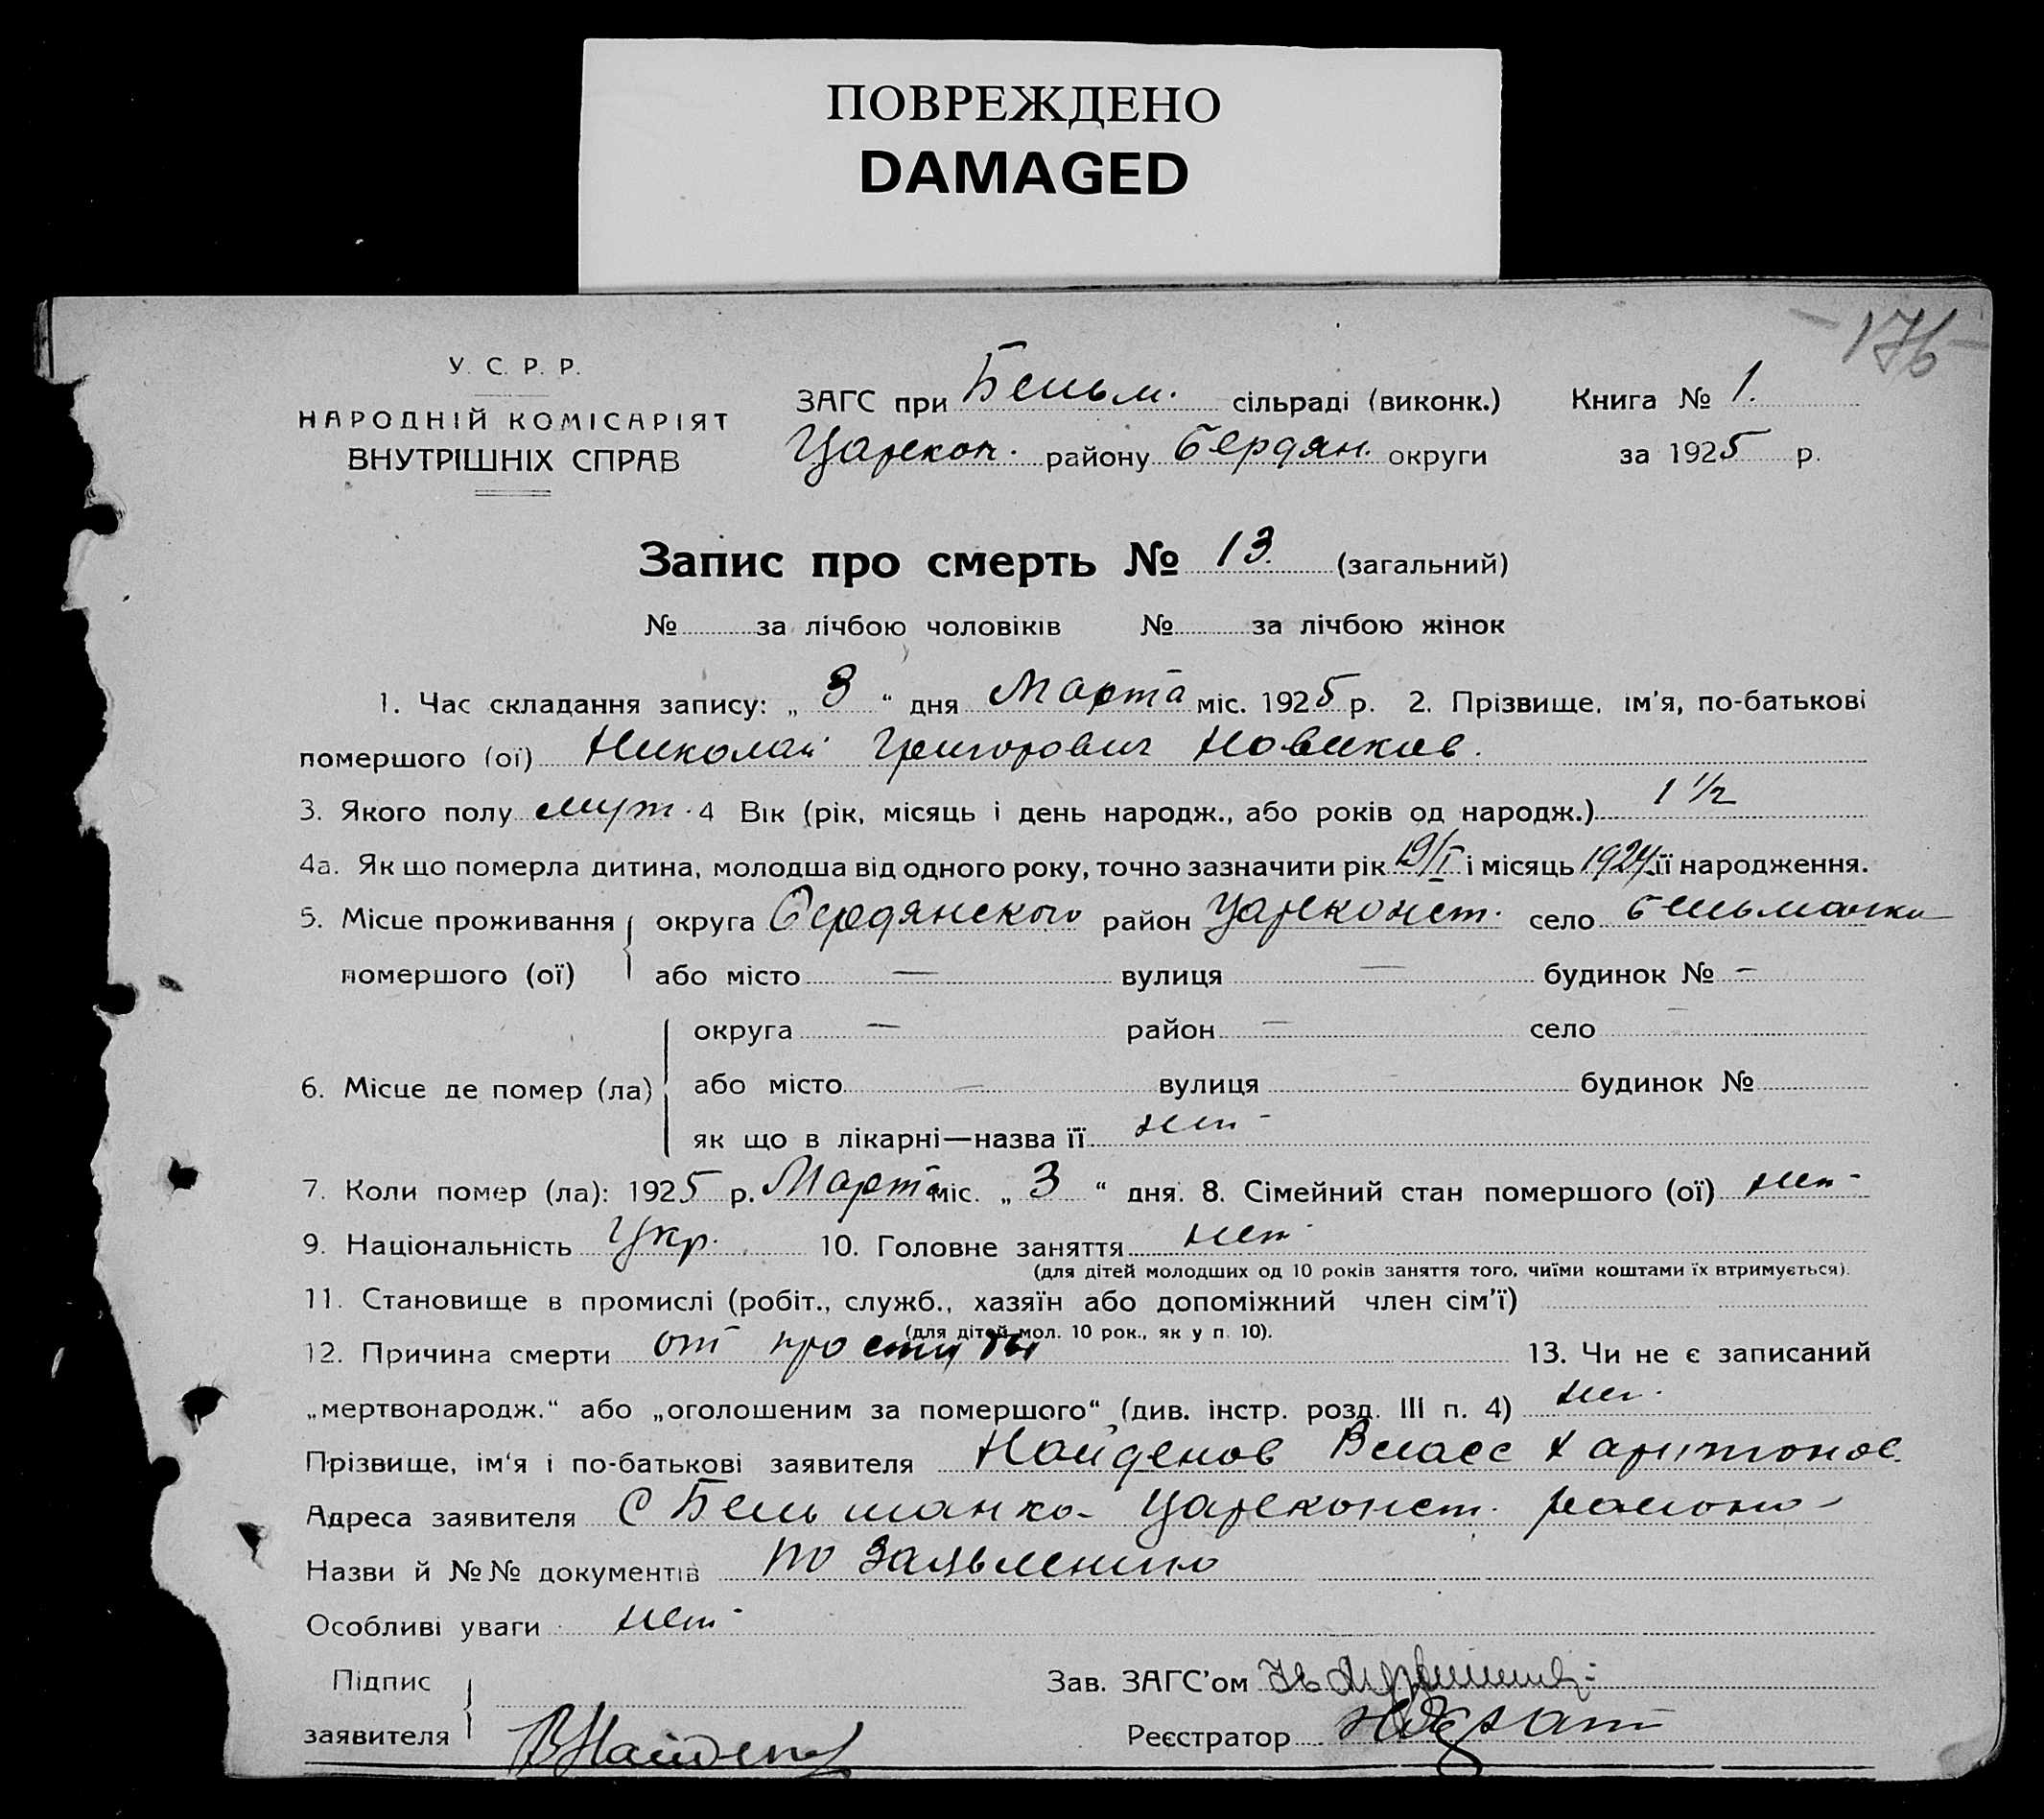 ПОВРЕЖДЕНО
DAMAGED
176
У. С. Р. Р.
НАРОДНІЙ КОМІСАРІЯТ
ВНУТРІШНІХ СПРАВ
ЗАГС при Бельм. сільраді (виконк.) Книга № 1.
Царекон. району Бердян. округи за 1925 р.
Запис про смерть № 13. (загальний)
№ за лічбою чоловіків № за лічбою жінок
1. Час складання запису: „ 3 “ дня Марта міс. 1925 р. 2. Прізвище, ім'я, по-батькові
помершого (ої) Николай Григорович Новиков.
3. Якого полу муж. 4 Вік (рік, місяць і день народж., або років од народж.) 1 1/2
4а. Як що померла дитина, молодша від одного року, точно зазначити рік 19/I і місяць 1924 її народження.
5. Місце проживання округа Бердянского район Цареконст. село Бельманки
помершого (ої) або місто — вулиця — будинок № –
округа — район — село –
6. Місце де помер (ла) або місто — вулиця будинок №
як що в лікарні—назва її нет
7. Коли помер (ла): 1925 р. Марта міс. „ 3 “ дня. 8. Сімейний стан помершого (ої) нет
9. Національність Укр. 10. Головне заняття нет
(для дітей молодших од 10 років заняття того, чиїми коштами їх втримується).
11. Становище в промислі (робіт., служб., хазяїн або допоміжний член сім'ї)
(для дітей мол. 10 рок., як у п. 10).
12. Причина смерти от простуды 13. Чи не є записаний
„мертвонародж.“ або „оголошеним за помершого“ (див. інстр. розд. III п. 4) нет.
Прізвище, ім'я і по-батькові заявителя Найденов Власс Харитонов.
Адреса заявителя с Бельманка Цареконст. района
Назви й №№ документів по заявлению
Особливі уваги нет
Підпис
заявителя ВНайденов
Зав. ЗАГС'ом
Реєстратор